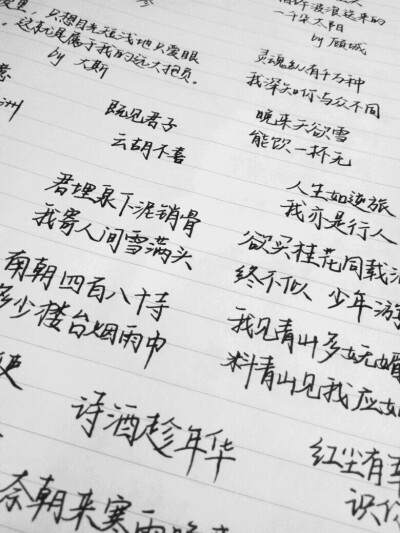 里，只想目光短浅地只爱眼
，这就是属于我的远大抱负。
by 大斯
洲
既见君子
云胡不喜
君埋泉下泥销骨
我寄人间雪满头
南朝四百八十寺
多少楼台烟雨中
诗酒趁年华
奈朝来寒雨晚来
波浪送来的
太阳
by 顾城
灵魂纵有千万种
我深知你与众不同
晚来天欲雪
能饮一杯无
人生如逆旅
我亦是行人
欲买桂花同载酒
终不似 少年游
我见青山多妩媚
料青山见我应如
红尘有幸
识你